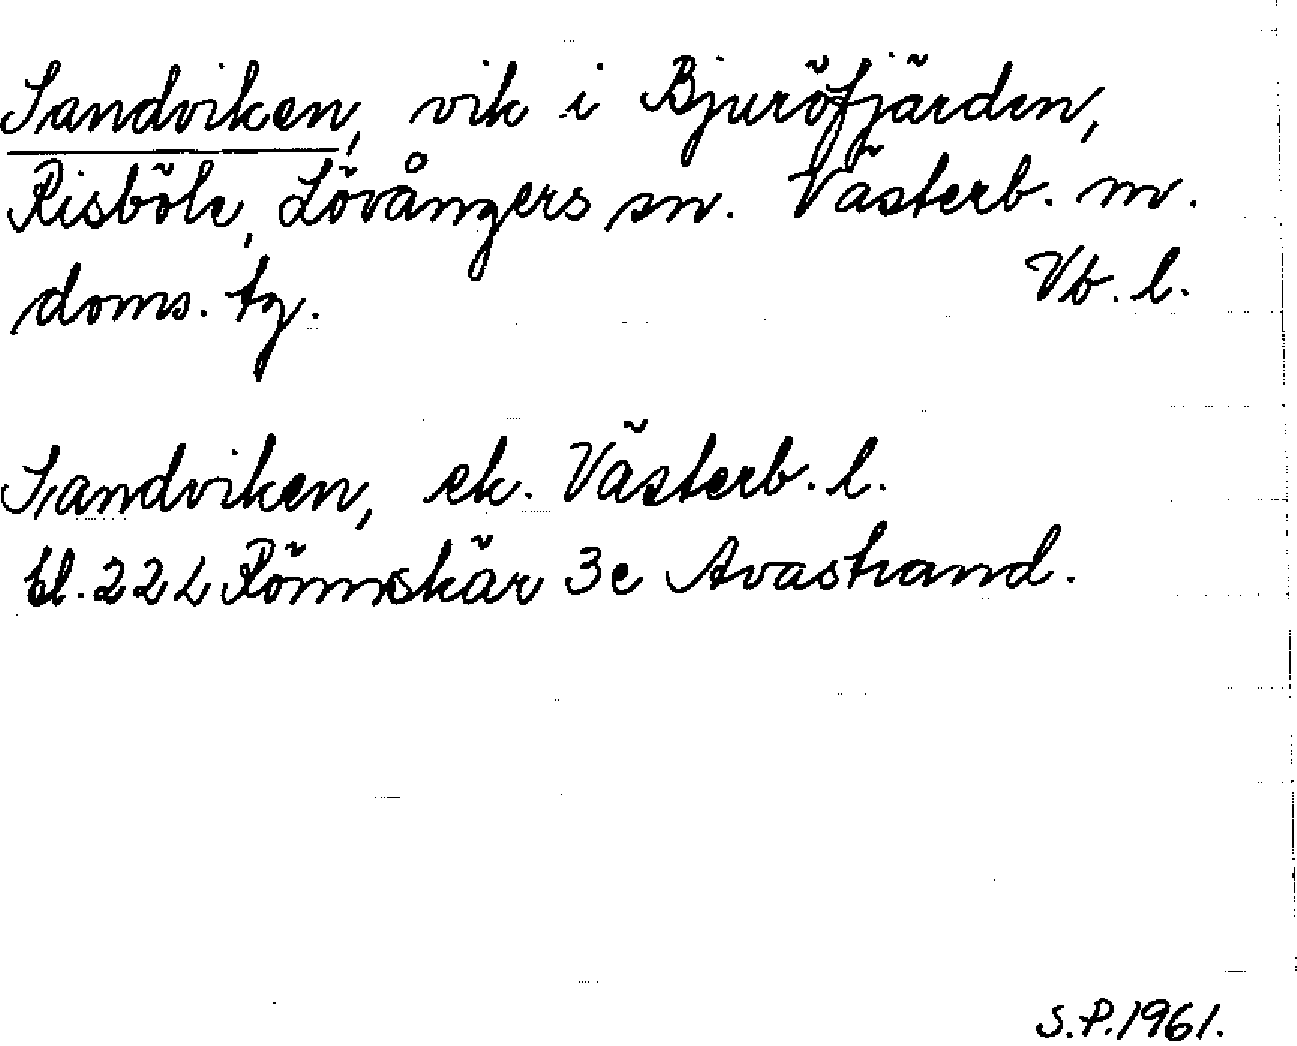 Sandviken, vik i Bjuröfjärden,
Risböle, Lövångers sn. Västerb. m.
doms. tg. Vb. l.
Sandviken, ek. Västerb. l.
bl. 22 L Rönnskär 3e Avastrand.
S.P. 1961.